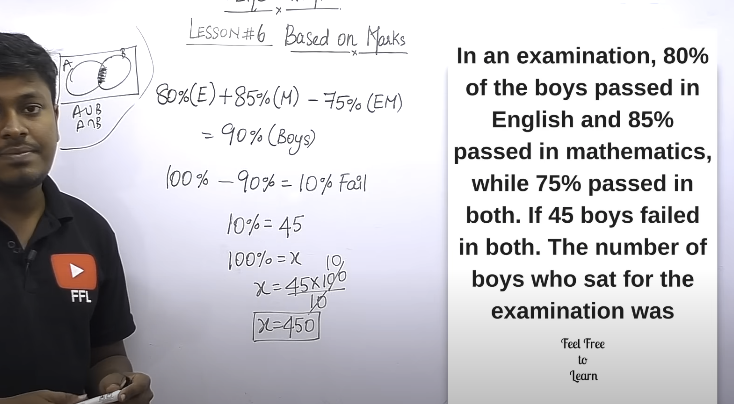 LESSON#6 Based on Marks
A B
A∪B
A∩B
80%(E)+85%(M) - 75%(EM)
= 90%(Boys)
100% - 90% = 10% Fail
10% = 45
100% = x
10
x = 45×100
10
x=450
FFL
In an examination, 80%
of the boys passed in
English and 85%
passed in mathematics,
while 75% passed in
both. If 45 boys failed
in both. The number of
boys who sat for the
examination was
Feel Free
to
Learn